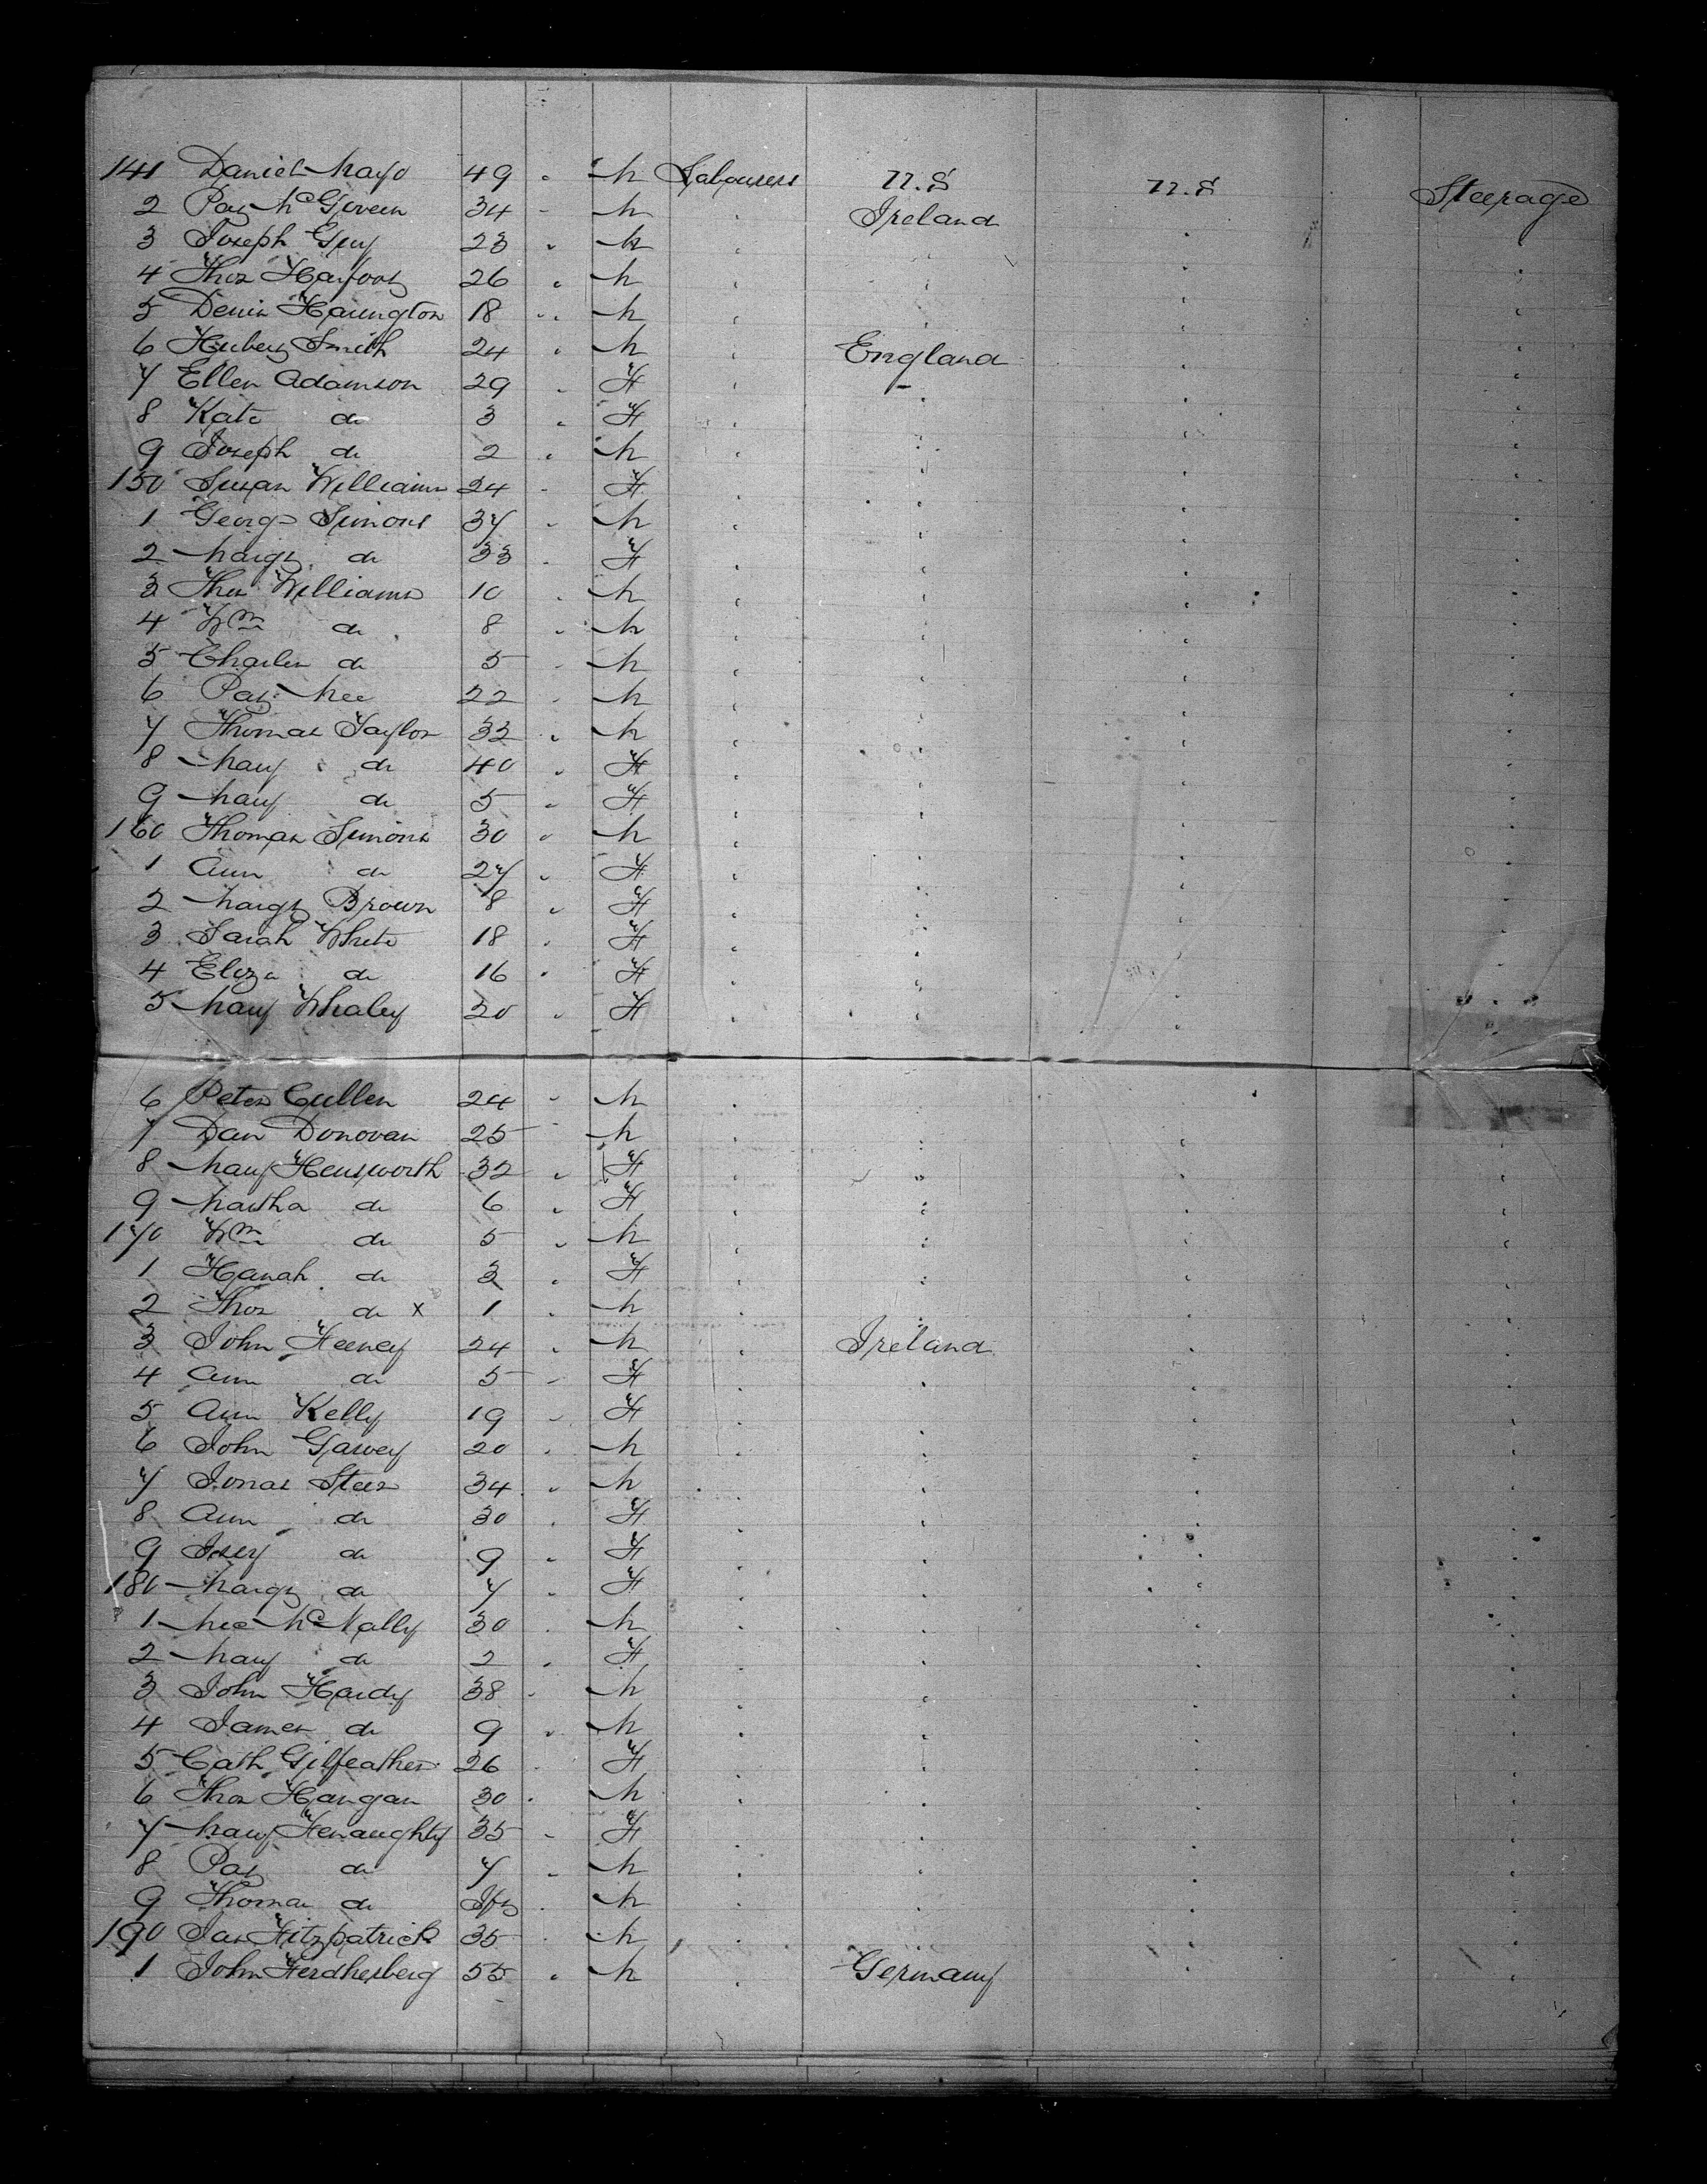 141 Daniel Mayo 49 " M Labourers U.S U.S Steerage
2 Pat McGovern 34 " M " Ireland " "
3 Joseph Guy 23 " M " " " "
4 Thos Harfoot 26 " M " " " "
5 Denis Harrington 18 " M " " " "
6 Hubert Smith 24 " M " England " "
7 Ellen Adamson 29 " F " " " "
8 Kate do 3 " F " " " "
9 Joseph do 2 " M " " " "
150 Susan Williams 24 " F " " " "
1 George Simons 37 " M " " " "
2 Margt do 33 " F " " " "
3 Thos Williams 10 " M " " " "
4 Wm do 8 " M " " " "
5 Charles do 5 " M " " " "
6 Pat Mee 22 " M " " " "
7 Thomas Taylor 32 " M " " " "
8 Mary do 40 " F " " " "
9 Mary do 5 " F " " " "
160 Thomas Simons 30 " M " " " "
1 Ann do 27 " F " " " "
2 Margt Brown 8 " F " " " "
3 Sarah White 18 " F " " " "
4 Eliza do 16 " F " " " "
5 Mary Whaley 20 " F " " " "
6 Peter Cullen 24 " M " " " "
7 Dan Donovan 25 " M " " " "
8 Mary Hensworth 32 " F " " " "
9 Martha do 6 " F " " " "
170 Wm do 5 " M " " " "
1 Hanah do 3 " F " " " "
2 Thos do x 1 " M " " " "
3 John Feeney 24 " M " Ireland " "
4 Ann do 5 " F " " " "
5 Ann Kelly 19 " F " " " "
6 John Garvey 20 " M " " " "
7 Jonas Steer 34 " M " " " "
8 Ann do 30 " F " " " "
9 do 9 " F " " " "
180 Margt do 7 " F " " " "
1 McNally 30 " M " " " "
2 Mary do 2 " F " " " "
3 John Hardy 38 " M " " " "
4 James do 9 " M " " " "
5 Cath Gilfeather 26 " F " " " "
6 Thos Hangan 30 " M " " " "
7 Mary Fenaughty 35 " F " " " "
8 Pat do 7 " M " " " "
9 Thomas do Inft " M " " " "
190 Jas Fitzpatrick 35 " M " " " "
1 John Ferdherberg 55 " M " Germany " "